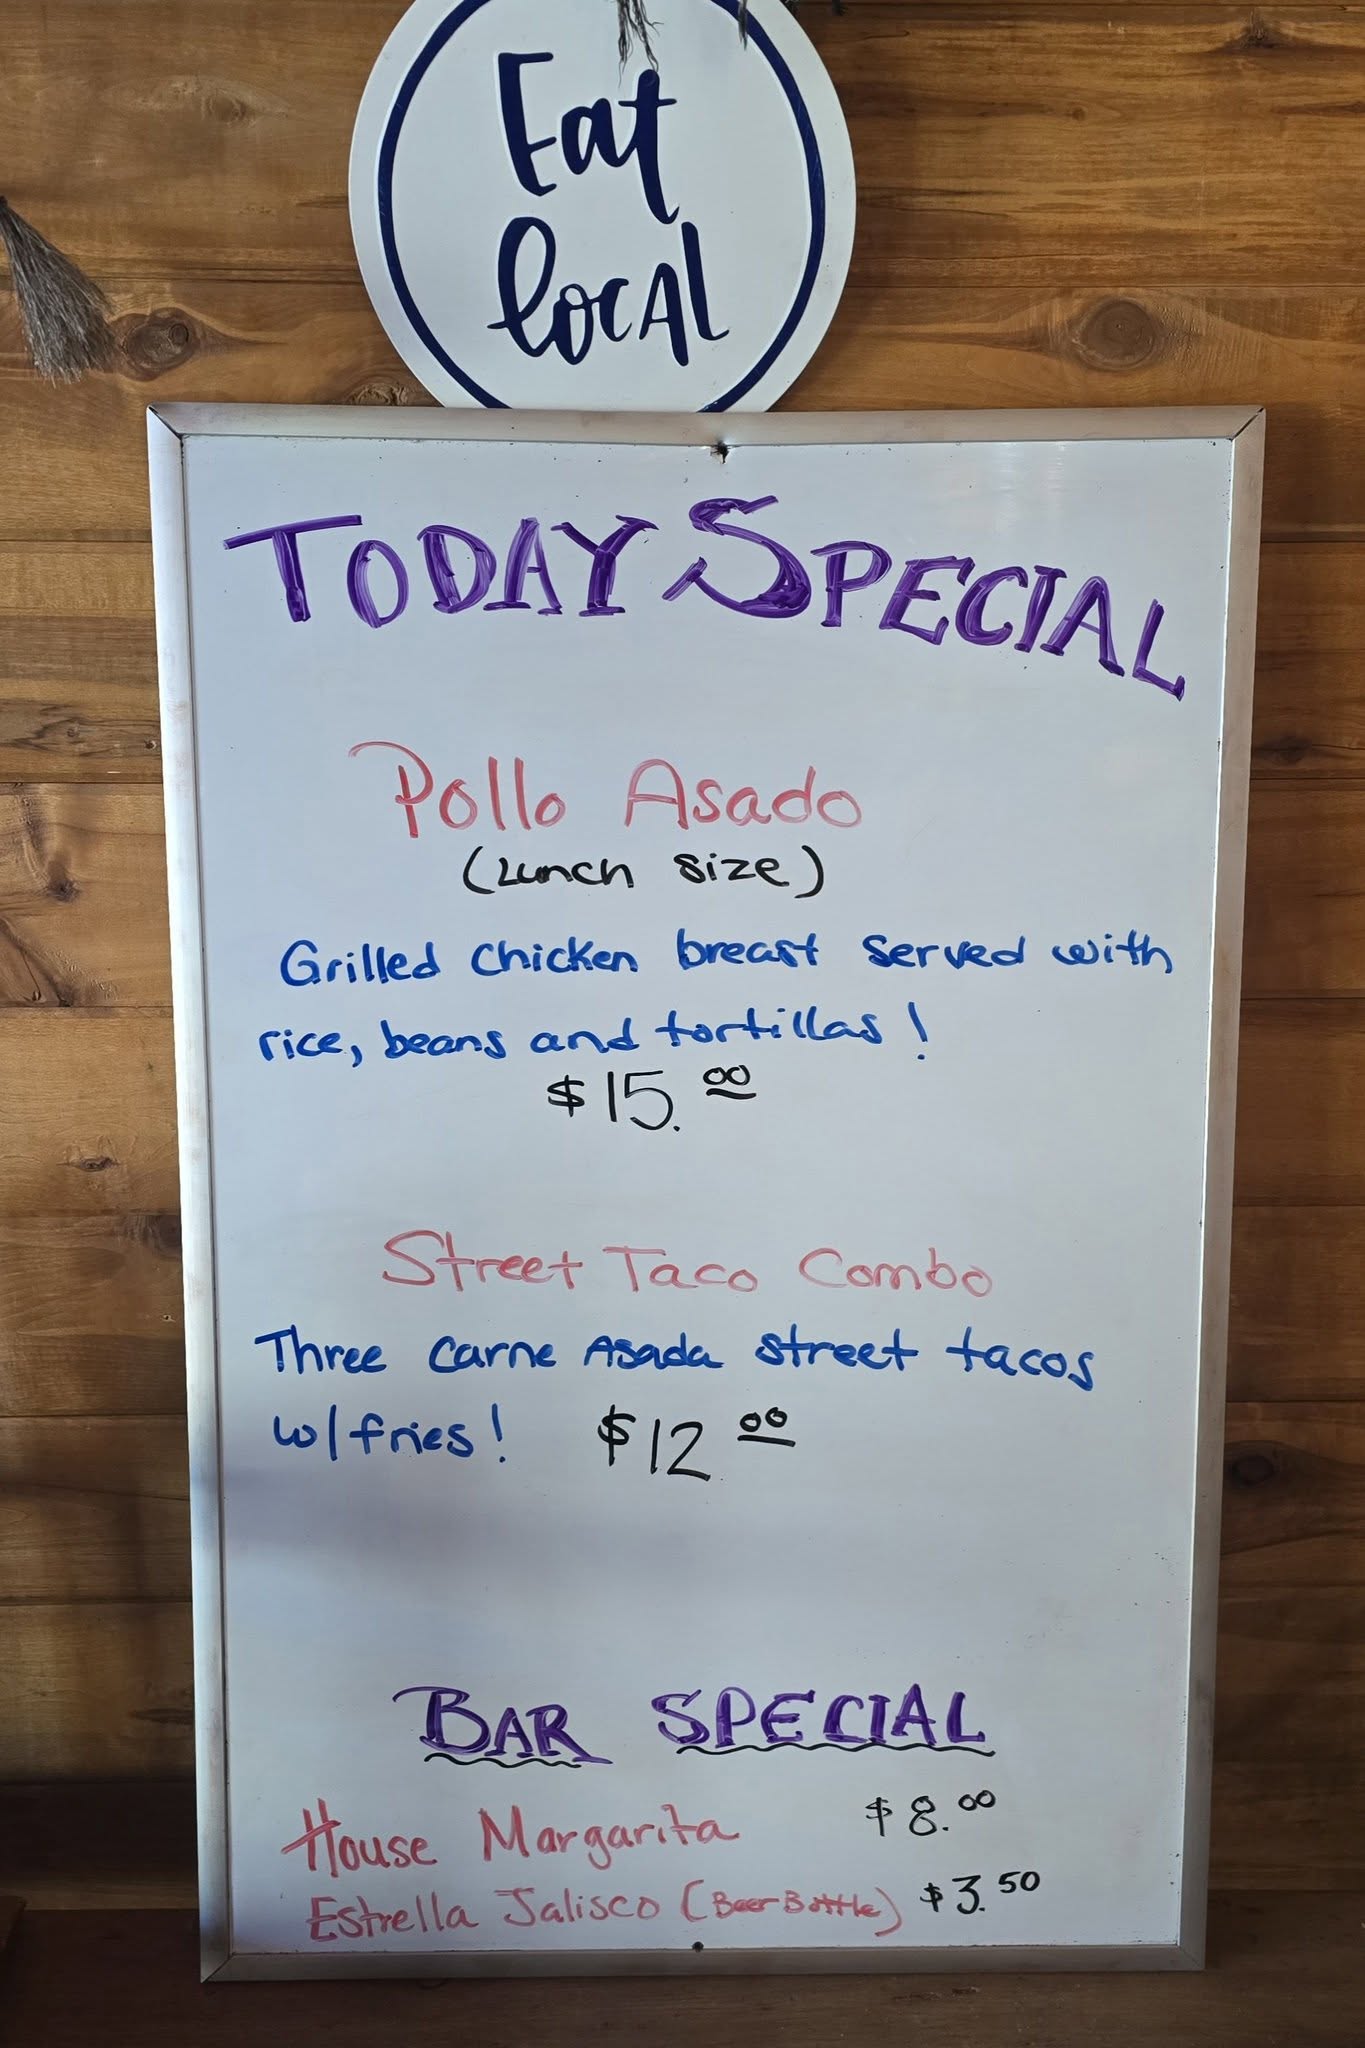 Eat
local
TODAY SPECIAL
Pollo Asado
(Lunch size)
Grilled Chicken breast served with
rice, beans and tortillas!
$15.00
Street Taco Combo
Three Carne Asada street tacos
w/fries! $12 00
BAR SPECIAL
House Margarita $8.00
Estrella Jalisco (Beer Bottle) $3.50